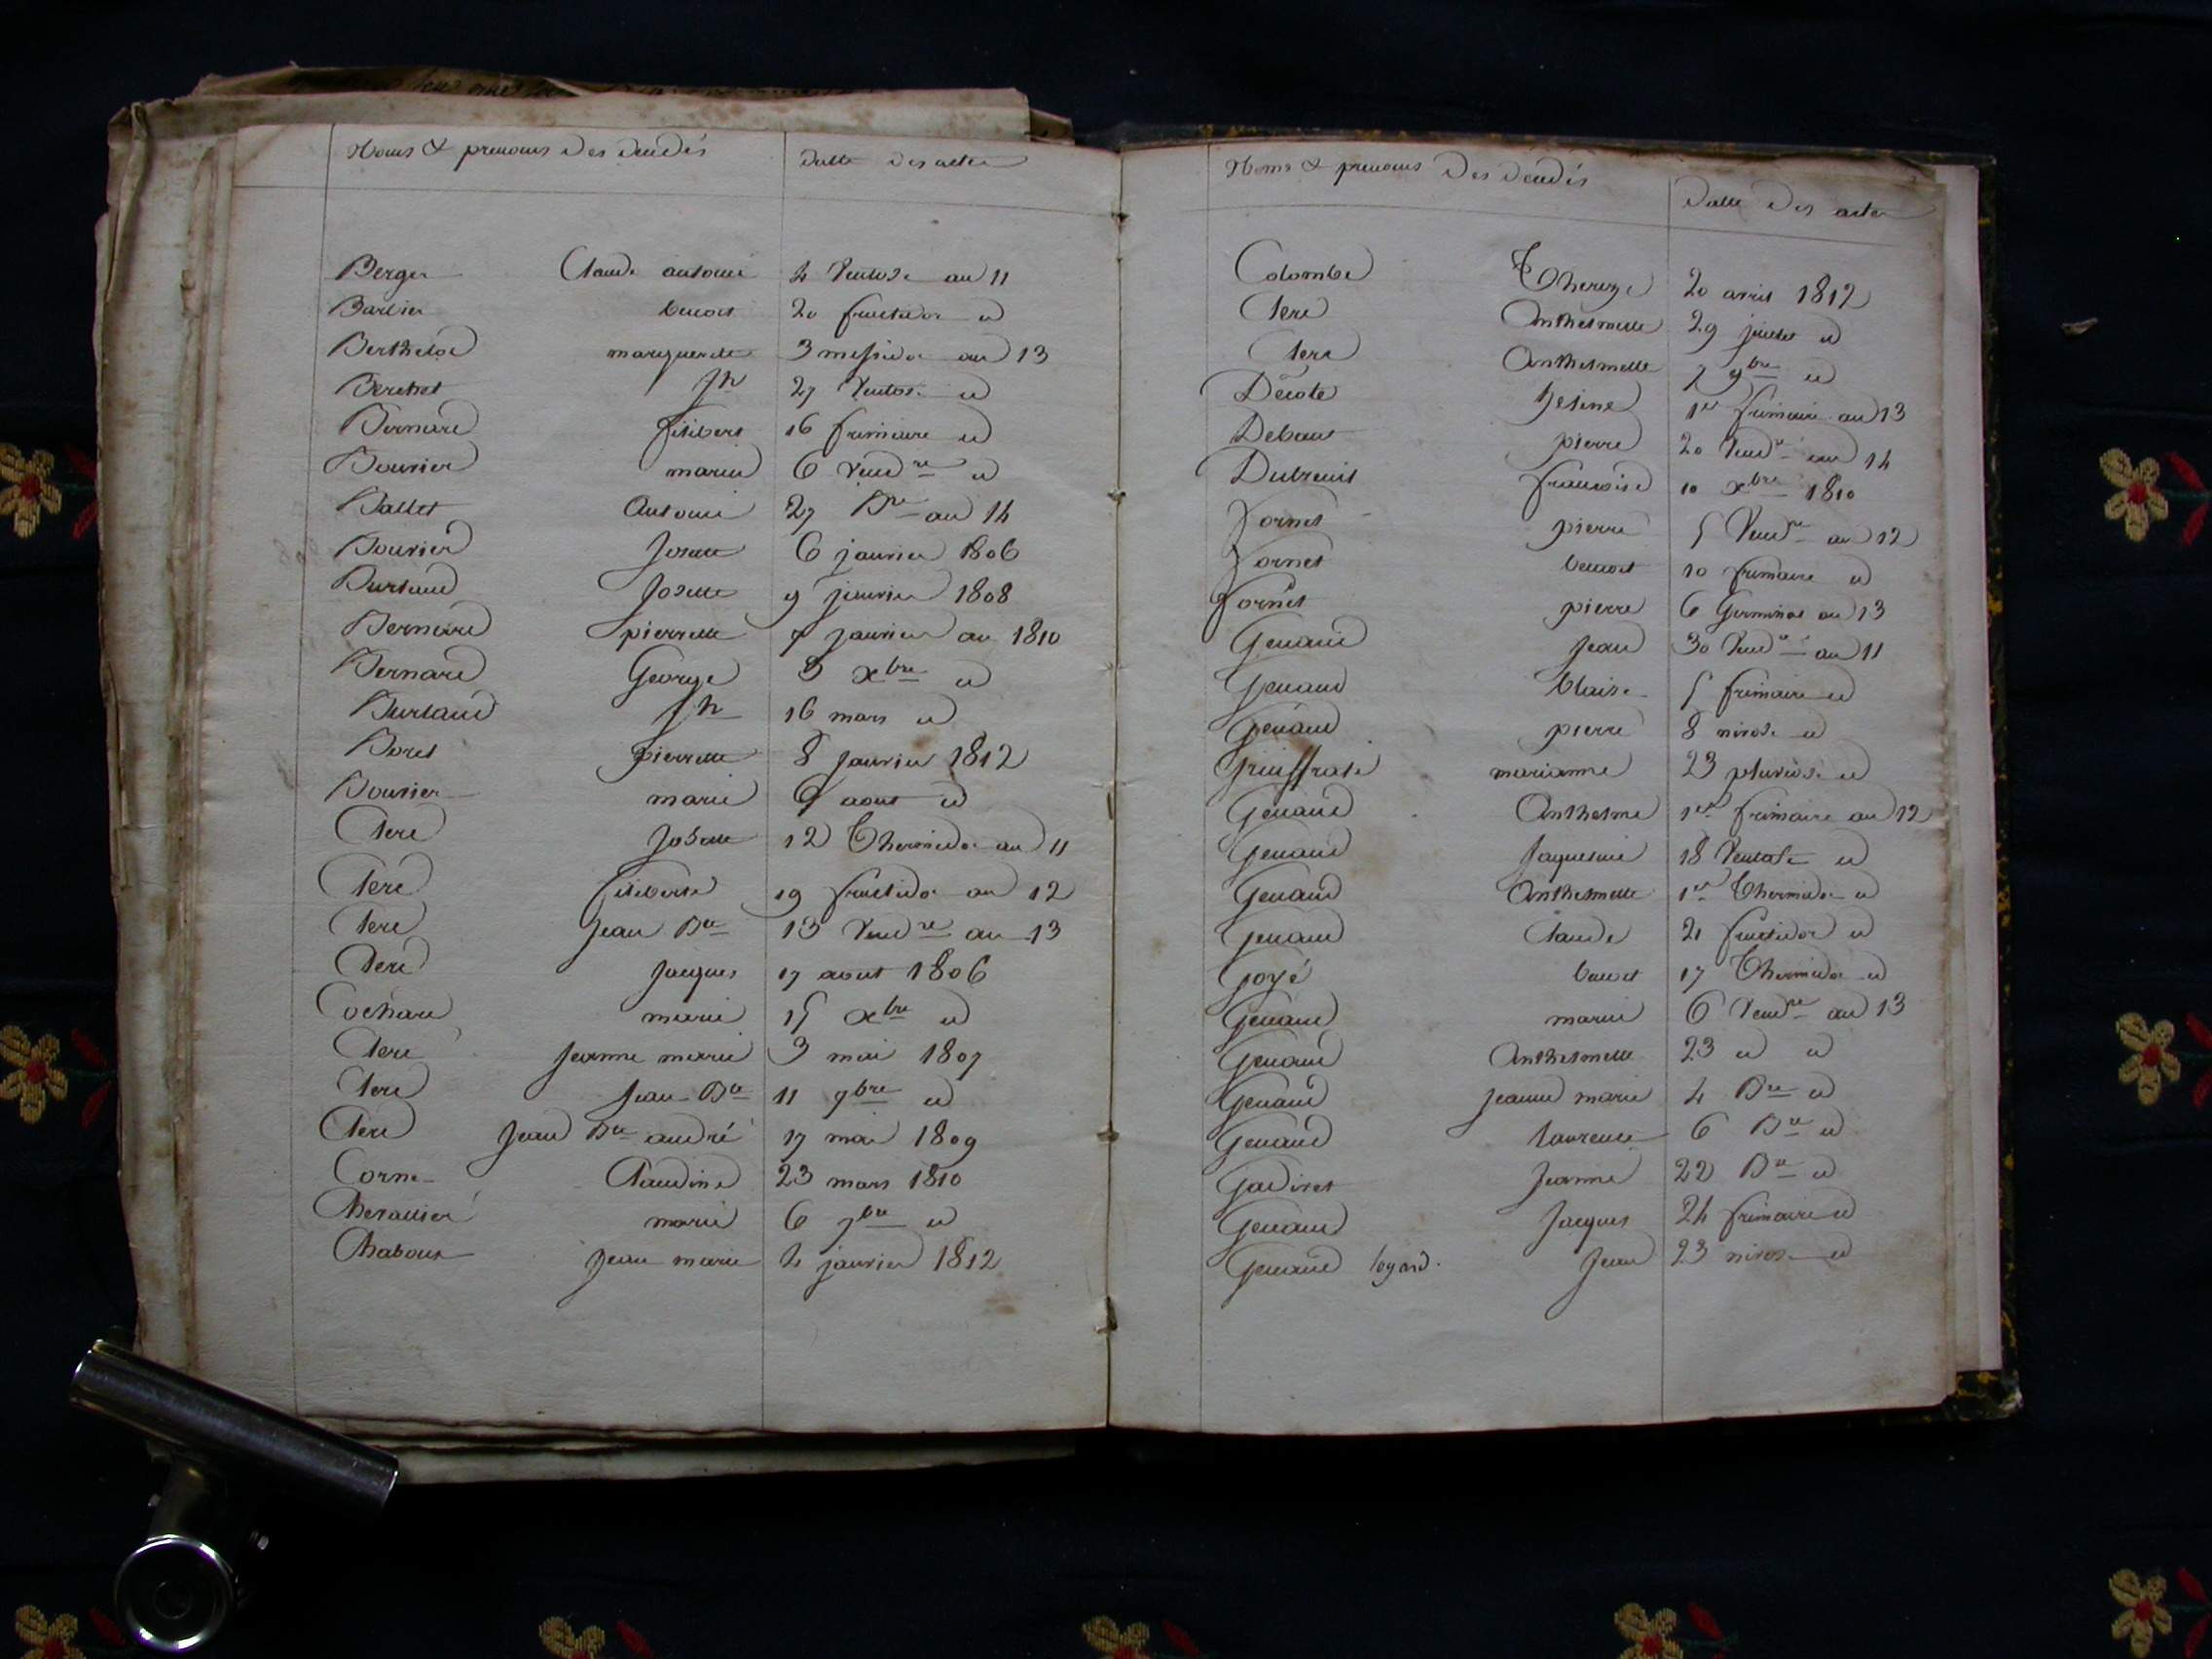 Noms & prenoms Des Decedés Datte Des actes
Berger Claude antoine 4 Ventose an 11
Barbier benoit 20 fructidor id
Berthelod marguerite 3 messidor an 13
Berchet Jh 27 Ventose id
Bernard filibert 16 frimaire id
Bouvier marie 6 Vendre id
Ballet Antoine 27 Bre an 14
Bouvier Josette 6 janvier 1806
Burtaud Josette 9 janvier 1808
Bernard pierrette 7 janvier an 1810
Bernard George 3 xbre id
Burtaud Jh 16 mars id
Boret pierrette 8 janvier 1812
Bouvier marie 9 aout id
Clerc Josette 12 Thermidor an 11
Clerc filiberte 19 fructidor an 12
Clerc Jean Bte 13 Vendre an 13
Clerc Jacques 17 aout 1806
Cochard marie 15 xbre id
Clerc Jeanne marie 3 mai 1807
Clerc Jean Bte 11 9bre id
Clerc Jean Bte andré 17 mai 1809
Corne Claudine 23 mars 1810
Chevallier marie 6 7bre id
Chaboux Jean marie 4 janvier 1812
Noms & prenoms Des Decedés Datte Des actes
Colombe Thereze 20 avril 1812
Clerc Anthelmette 29 juillet id
Clerc Anthelmette 7 9bre id
Decote 1er frimaire an 13
Debaut pierre 20 Vendre an 14
Dubreuil francoise 10 xbre 1810
Fornet pierre 5 Vendre an 12
Fornet benoit 10 frimaire id
Fornet pierre 6 Germinal an 13
Genaud Jean 30 Vendre an 11
Genaud blaise 5 frimaire id
Genaud pierre 8 nivose id
marianne 23 pluviose id
Genaud Anthelme 1er frimaire an 12
Genaud Jaquemine 18 Ventose id
Genaud Anthelmette 1er Thermidor id
Genaud Claude 21 fructidor id
Goyé benoit 17 Thermidor id
Genaud marie 6 Vendre an 13
Genaud Anthelmette 23 id id
Genaud jeanne marie 4 Bre id
Genaud laurence 6 Bre id
Gadiret Jeanne 22 Bre id
Genaud Jacques 24 frimaire id
Genaud Jean 23 nivose id